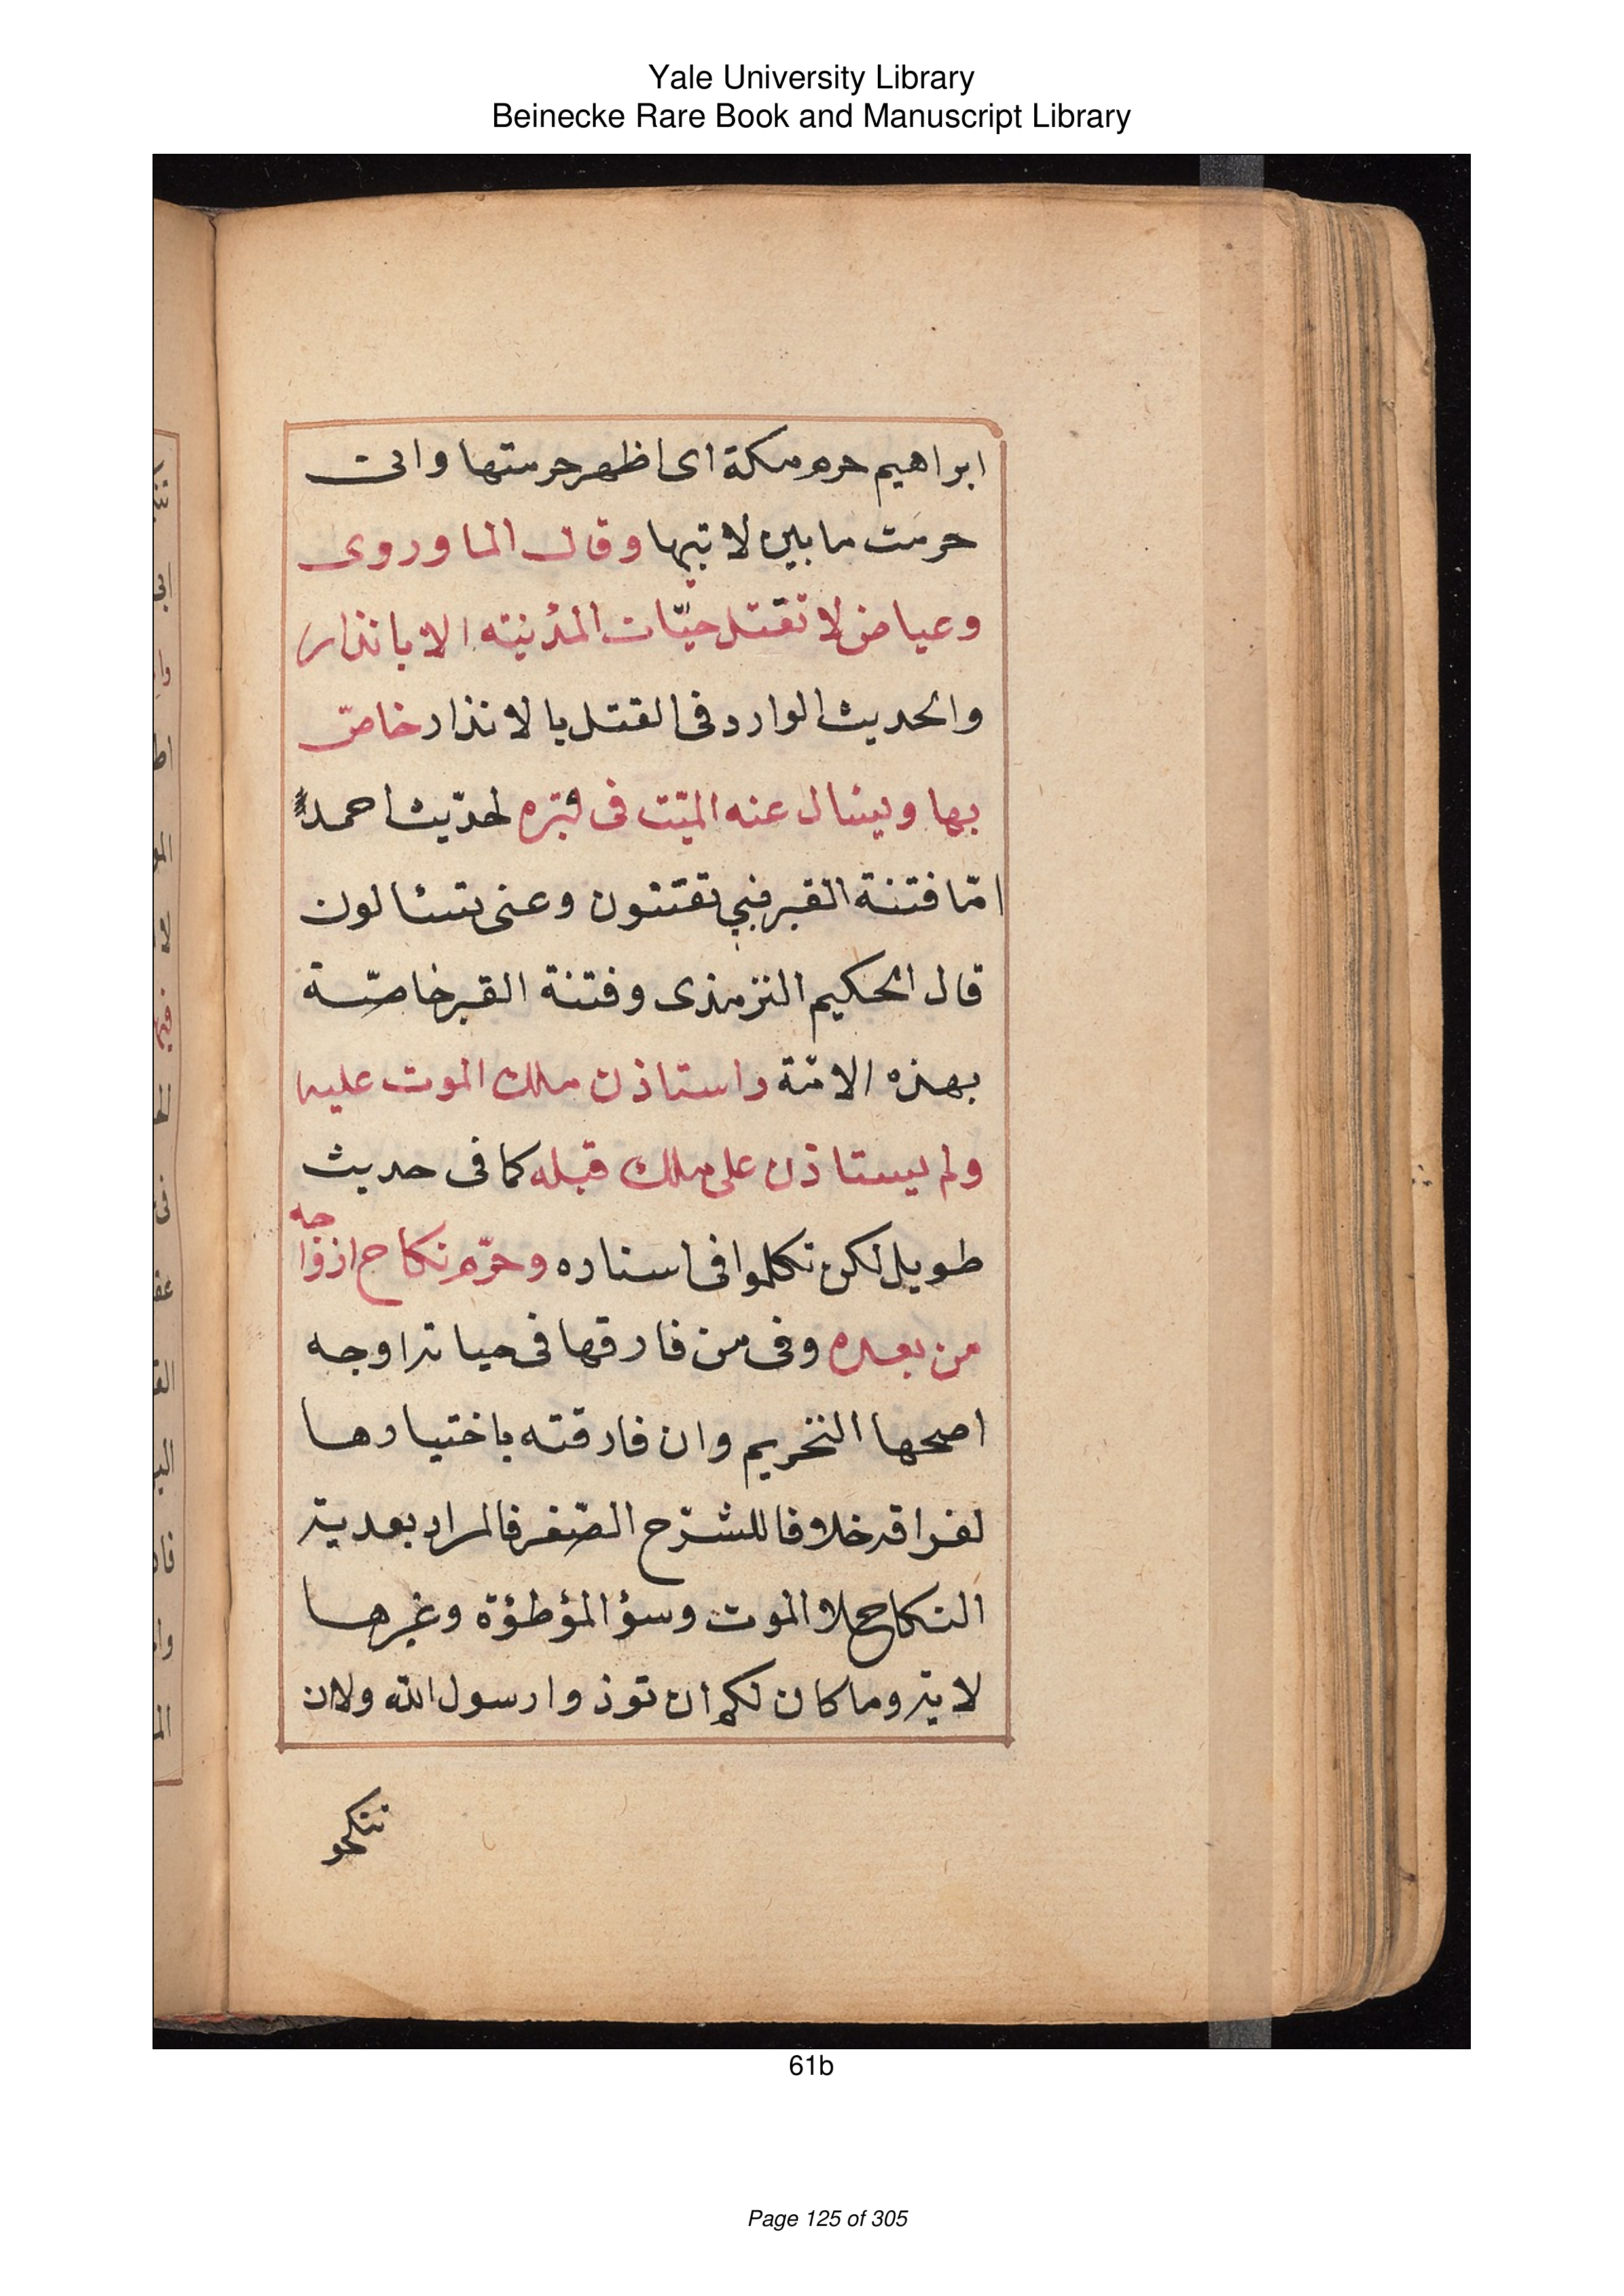 Yale University Library
Beinecke Rare Book and Manuscript Library
ابراهيم حرم مكة اى اظهر حرمتها وانى
حرمت ما بين لابتيها وقال الماوردى
وعياض لا تقتل حيّات المدينته الا بانذار
والحديث الوارد فى القتل بالانذار خاصّ
بها ويسال عنه الميّت فى قبره لحديث احمد
امّا فتنة القبر فبى تفتنون وعنى تسئالون
قال الحكيم الترمذى وفتنة القبر خاصّة
بهذه الامّة واستاذن ملك الموت عليه
ولم يستاذن على ملك قبله كما فى حديث
طويل لكن تكلموا فى اسناده وحرّم نكاح ازواجه
من بعده وفى من فارقها فى حياته اوجه
اصحها التحريم وان فارقته باختيارها
لفراقه خلافا للشرّح الصّغر فالمراد بعدية
النكاح لا الموت وسؤ المؤطؤة وغيرها
لاية وما كان لكم ان توذوا رسول الله ولان
تنكحو
61b
Page 125 of 305